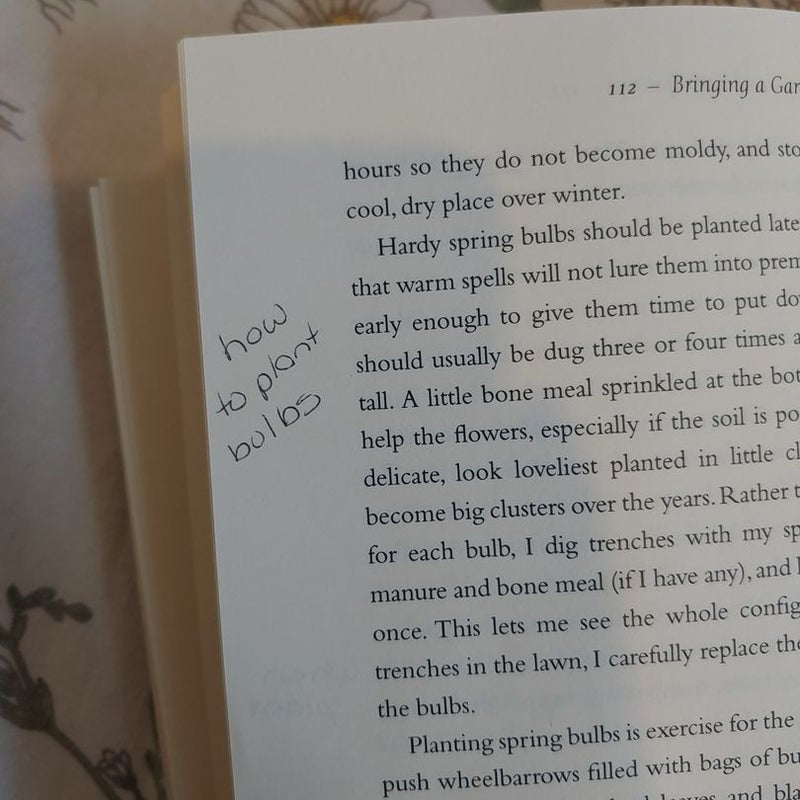 112 – Bringing a Gar
hours so they do not become moldy, and sto
cool, dry place over winter.
Hardy spring bulbs should be planted late
that warm spells will not lure them into prem
early enough to give them time to put do
should usually be dug three or four times a
tall. A little bone meal sprinkled at the bot
help the flowers, especially if the soil is po
delicate, look loveliest planted in little cl
become big clusters over the years. Rather t
for each bulb, I dig trenches with my sp
manure and bone meal (if I have any), and
once. This lets me see the whole config
trenches in the lawn, I carefully replace the
the bulbs.
Planting spring bulbs is exercise for the
push wheelbarrows filled with bags of bu
leaves and bla
how
to plant
bulbs